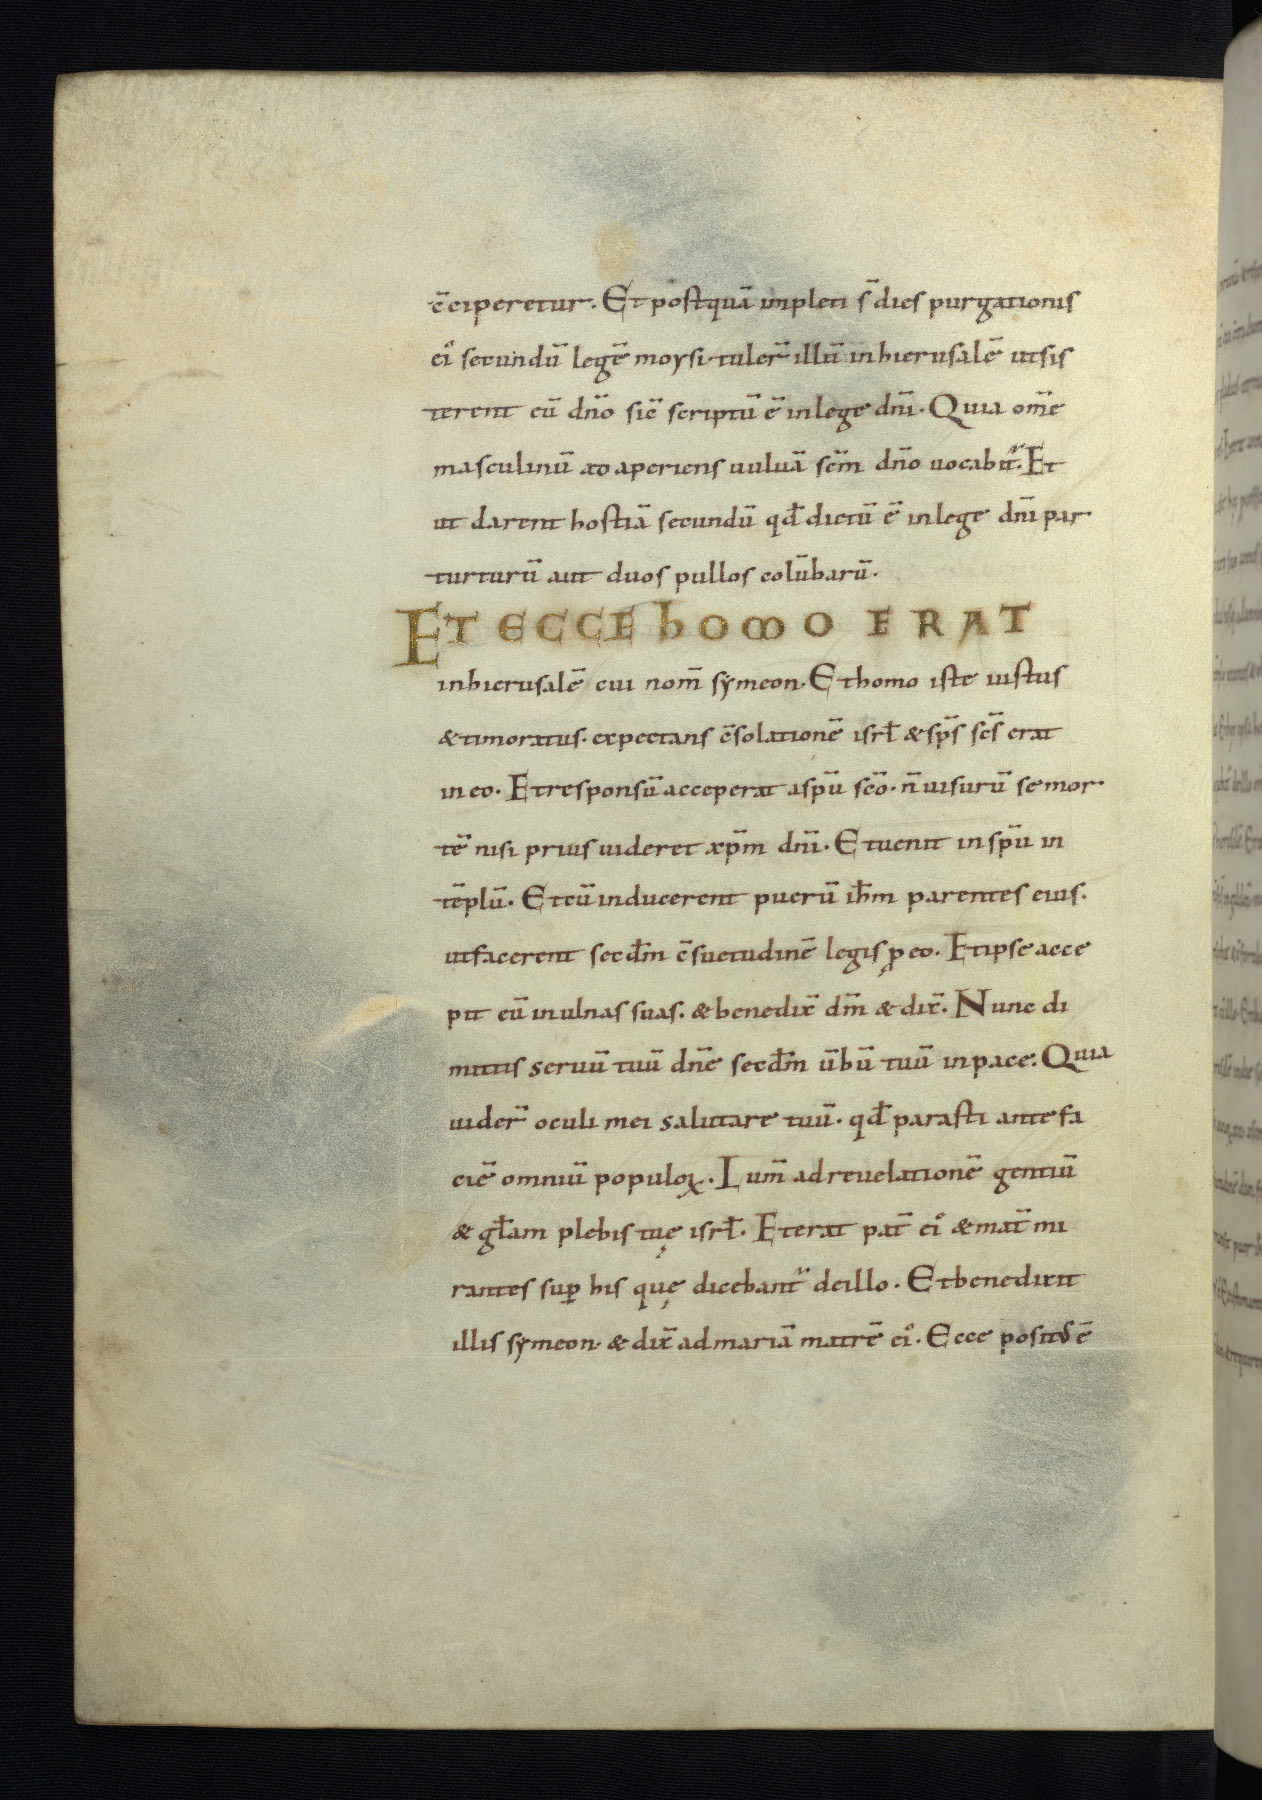 c̄ciperetur. Et postquā impleti s̄ dies purgationis
ei᾿ secundū legē moysi. tuler̄ illū in hierusalē ut sis
terent eū dn̄o sic̄ scriptū ē in lege dn̄i. Quia om̄e
masculinū adaperiens uuluā sc̄m dn̄o uocabit᷑. Et
ut darent hostiā secundū qđ dictū ē in lege dn̄i par
turturū aut duos pullos colūbarū.
ET ECCE hOMO ERAT
in hierusalē cui nom̄ sẏmeon. Et homo iste iustus
& timoratus. expectans c̄solationē isrł & sp̄s sc̄s erat
in eo. Et responsū acceperat a spū sc̄o. n̄ uisurū se mor
tē nisi prius uideret xp̄m dn̄i. Et uenit in spū in
tēplū. Et cū inducerent puerū ih̄m parentes eius.
ut facerent secđm c̄suetudinē legis ꝓ eo. Et ipse acce
pit eū in ulnas suas. & benedix̄ dm̄ & dix̄. Nunc di
mittis seruū tuū dn̄e secđm ūbū tuū in pace. Quia
uider̄ oculi mei salutare tuū. qđ parasti ante fa
ciē omniū populoꝝ. Lum̄ ad reuelationē gentiū
& gł̄am plebis tuę isrł. Et erat pat̄ ei᾿ & mat̄ mi
rantes suꝑ his quę dicebant᷑ de illo. Et benedixit
illis sẏmeon. & dix̄ ad mariā matrē ei᾿. Ecce positus ē